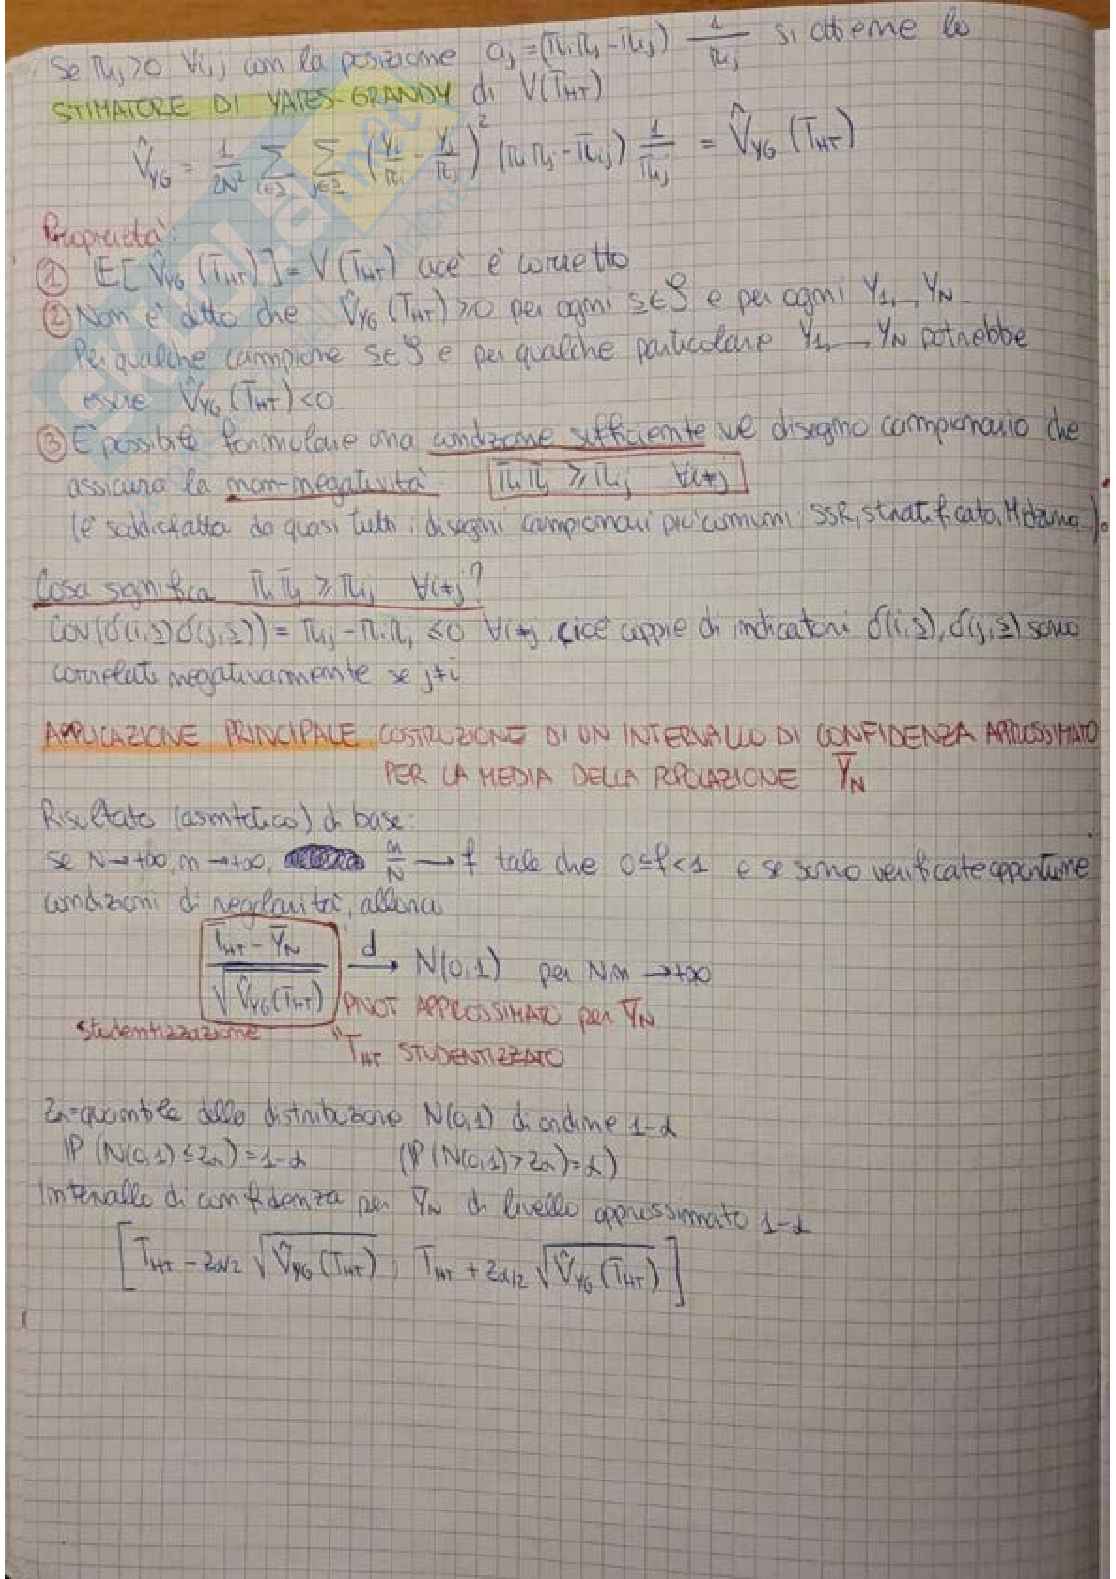 Se πij>0 ∀i,j con la posizione aij=(πiπj-πij) 1/πij si ottiene lo
STIMATORE DI YATES-GRANDY di V(THT)
V̂YG = 1/2N² Σi∈s Σj∈s (yi/πi - yj/πj)² (πiπj-πij) 1/πij = V̂YG (THT)
Proprietà:
① E[V̂YG (THT)]=V(THT) cioè è corretto
② Non è detto che V̂YG (THT)≥0 per ogni s∈S e per ogni Y1,...,YN
Per qualche campione s∈S e per qualche particolare Y1,...,YN potrebbe
essere V̂YG (THT)<0
③ E' possibile formulare una condizione sufficiente sul disegno campionario che
assicura la non-negatività πiπj ≥ πij ∀i≠j
(è soddisfatta da quasi tutti i disegni campionari più comuni: SSR, stratificato,
Cosa significa πiπj ≥ πij ∀i≠j?
Cov(δ(i,s)δ(j,s)) = πij - πiπj ≤0 ∀i≠j, cioè coppie di indicatori δ(i,s), δ(j,s) sono
correlati negativamente se j≠i
APPLICAZIONE PRINCIPALE COSTRUZIONE DI UN INTERVALLO DI CONFIDENZA APPROSSIMATO
PER LA MEDIA DELLA POPOLAZIONE ȲN
Risultato (asintotico) di base:
se N→+∞, n→+∞, n/N → f tale che 0≤f<1 e se sono verificate opportune
condizioni di regolarità, allora
THT - ȲN / √V̂YG(THT) d→ N(0,1) per N,n →+∞
PIVOT APPROSSIMATO per ȲN
studentizzazione
THT STUDENTIZZATO
Zα=quantile della distribuzione N(0,1) di ordine 1-α
P(N(0,1)≤Zα)=1-α (P(N(0,1)>Zα)=α)
Intervallo di confidenza per ȲN di livello approssimato 1-α
[THT - zα/2 √V̂YG (THT) ; THT + zα/2 √V̂YG (THT)]